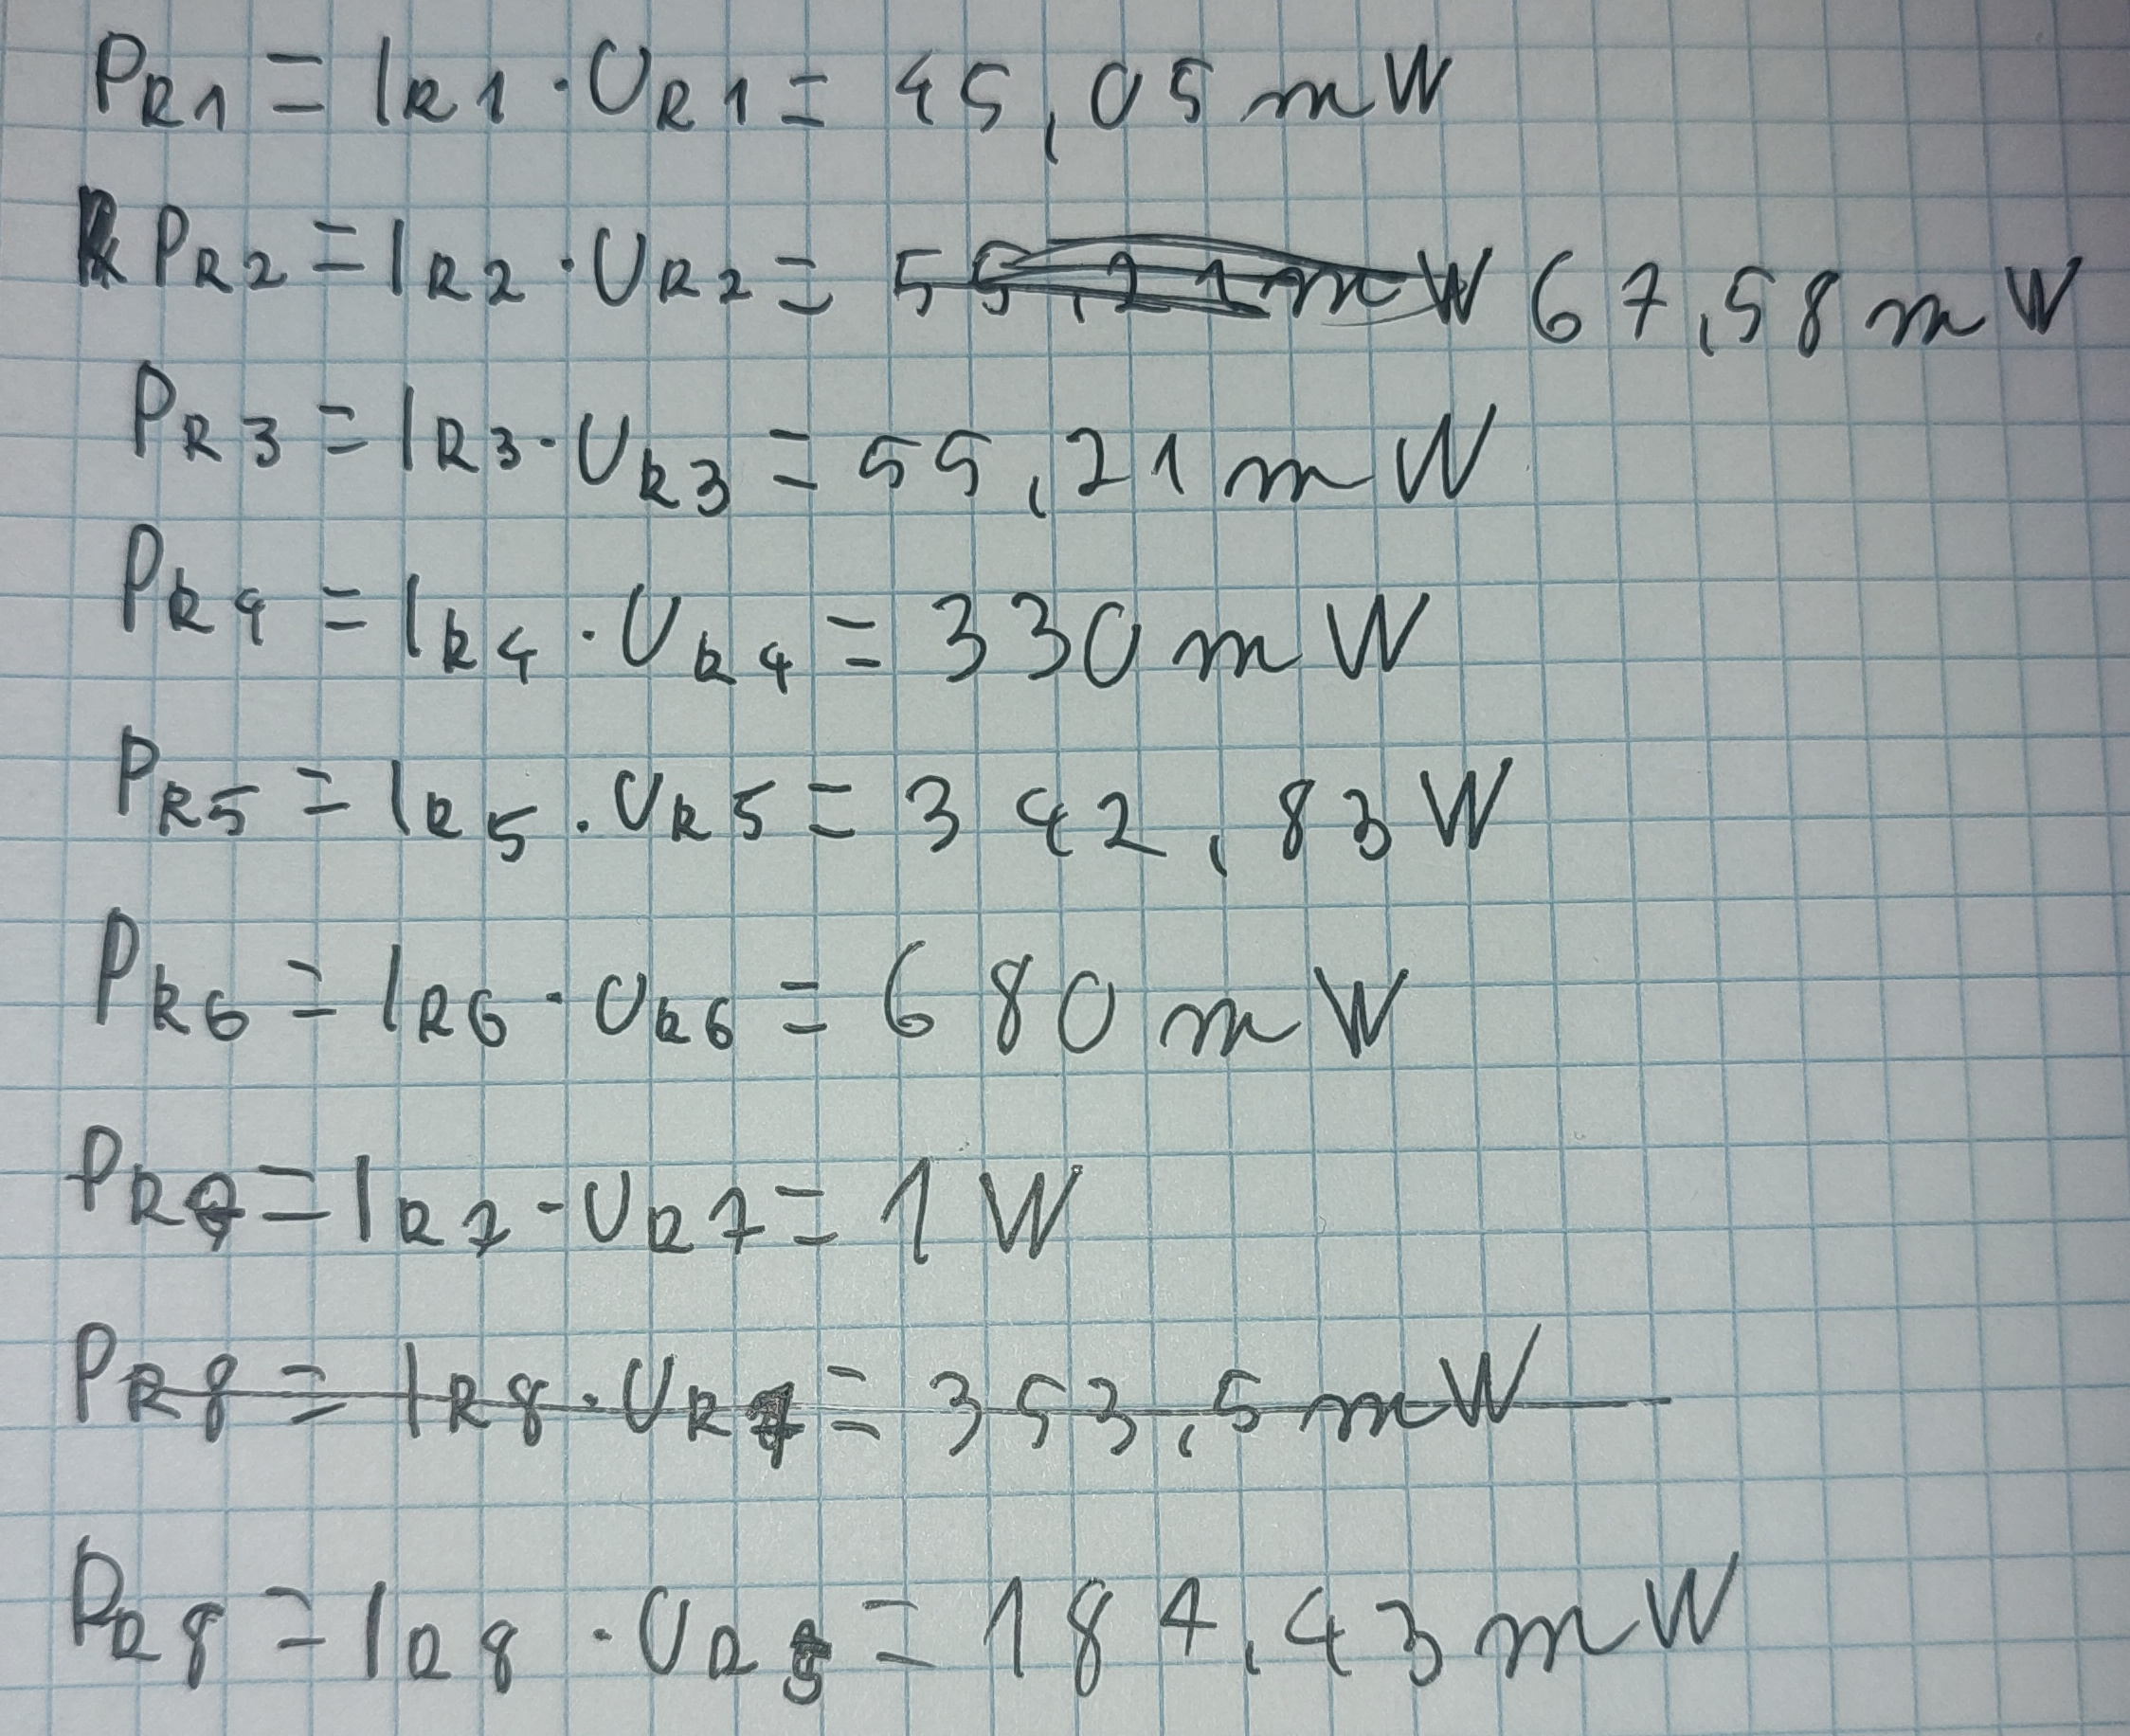 PR1 = IR1 · UR1 = 45,05 mW
PR2 = IR2 · UR2 = 55,21 mW 67,58 mW
PR3 = IR3 · UR3 = 55,21 mW
PR4 = IR4 · UR4 = 330 mW
PR5 = IR5 · UR5 = 342,83 W
PR6 = IR6 · UR6 = 680 mW
PR7 = IR7 · UR7 = 1 W
PR8 = IR8 · UR7 = 353,5 mW
PR8 = IR8 · UR8 = 184,43 mW